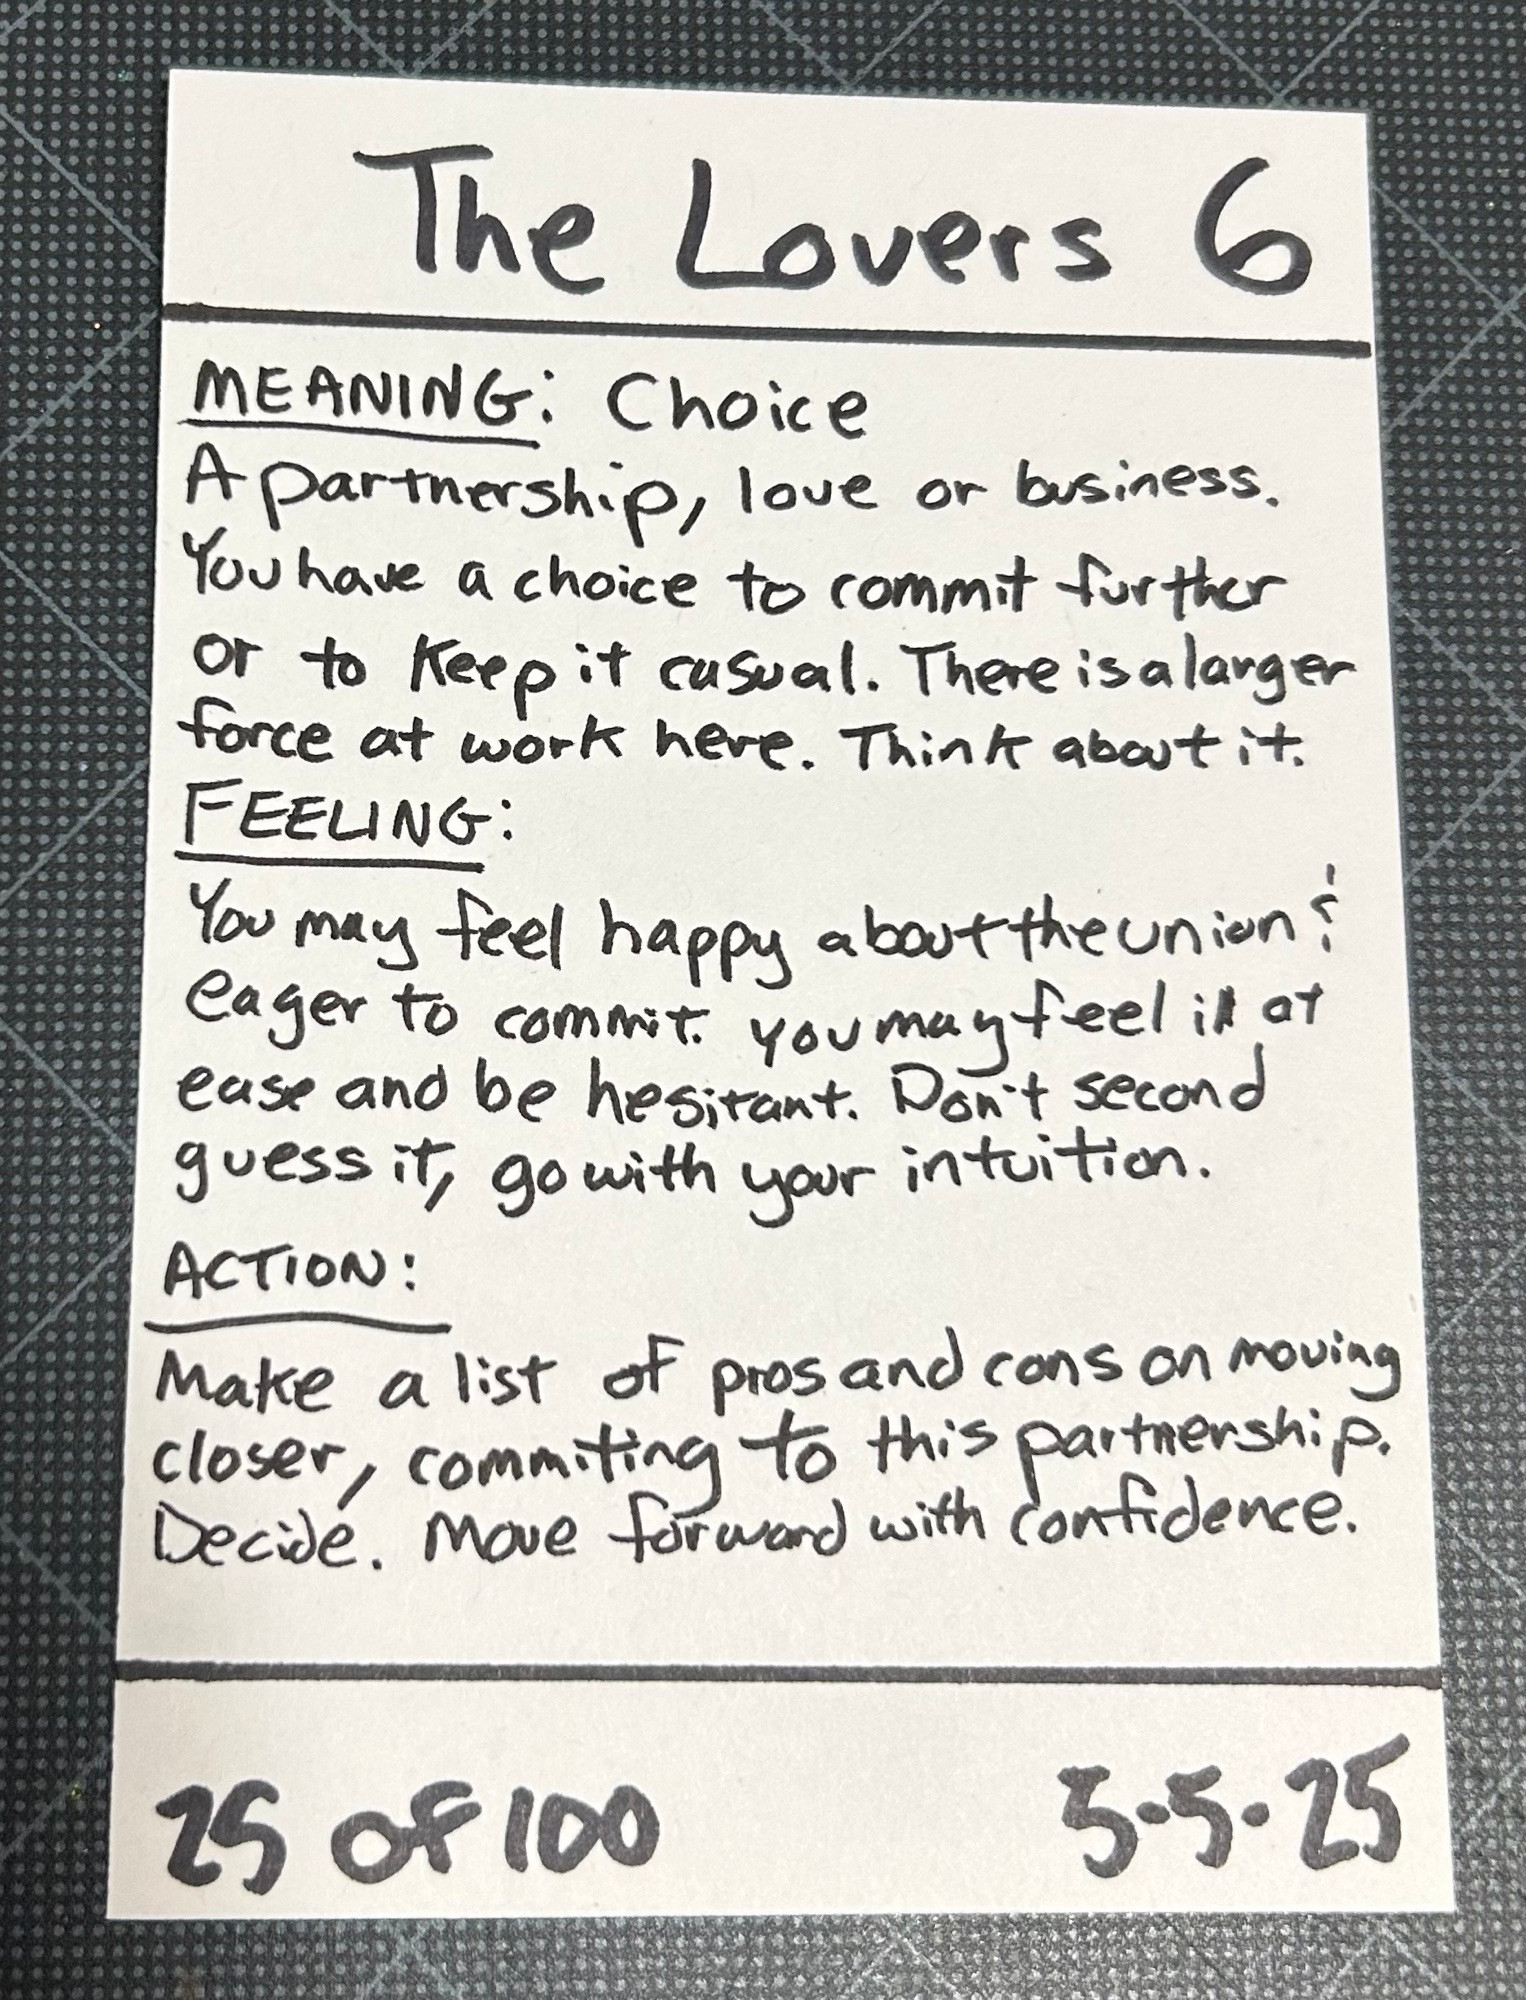 The Lovers 6
MEANING: Choice
A partnership, love or business.
You have a choice to commit further
or to keep it casual. There is a larger
force at work here. Think about it.
FEELING:
You may feel happy about the union &
eager to commit. You may feel ill at
ease and be hesitant. Don't second
guess it, go with your intuition.
ACTION:
Make a list of pros and cons on moving
closer, commiting to this partnership.
Decide. Move forward with confidence.
25 of 100
5-5-25